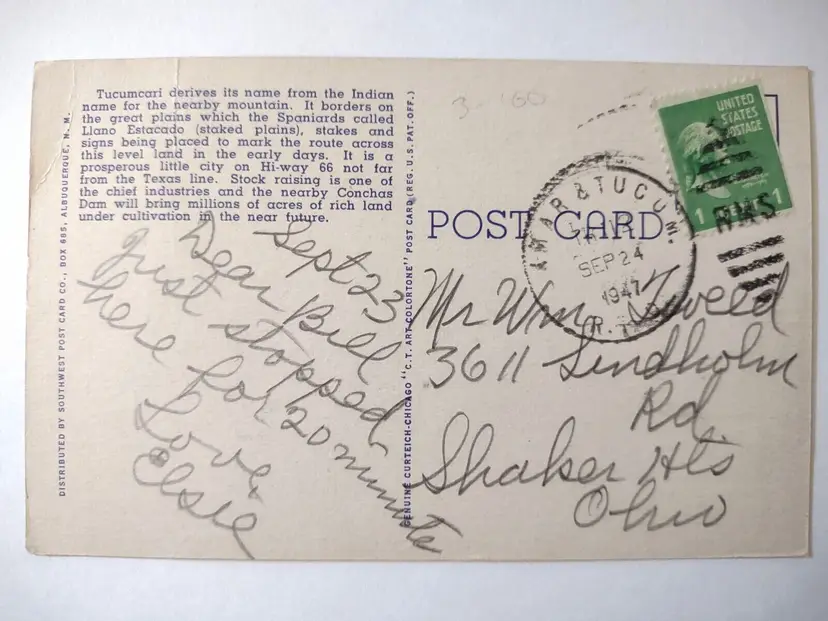 Tucumcari derives its name from the Indian
name for the nearby mountain. It borders on
the great plains which the Spaniards called
Llano Estacado (staked plains), stakes and
signs being placed to mark the route across
this level land in the early days. It is a
prosperous little city on Hi-way 66 not far
from the Texas line. Stock raising is one of
the chief industries and the nearby Conchas
Dam will bring millions of acres of rich land
under cultivation in the near future.
DISTRIBUTED BY SOUTHWEST POST CARD CO., BOX 685, ALBUQUERQUE, N. M.
Sept 23
Dear Bill
Just stopped
here for 20 minutes
Love,
Elsie
GENUINE CURTEICH-CHICAGO "C. T. ART-COLORTONE" POST CARD (REG. U. S. PAT. OFF.)
POST CARD
UNITED
STATES
POSTAGE
1
AMAR & TUCUM.
SEP 24
1947
R.
RMS
Mr Wm Tweed
3611 Lindholm
Rd
Shaker Hts
Ohio